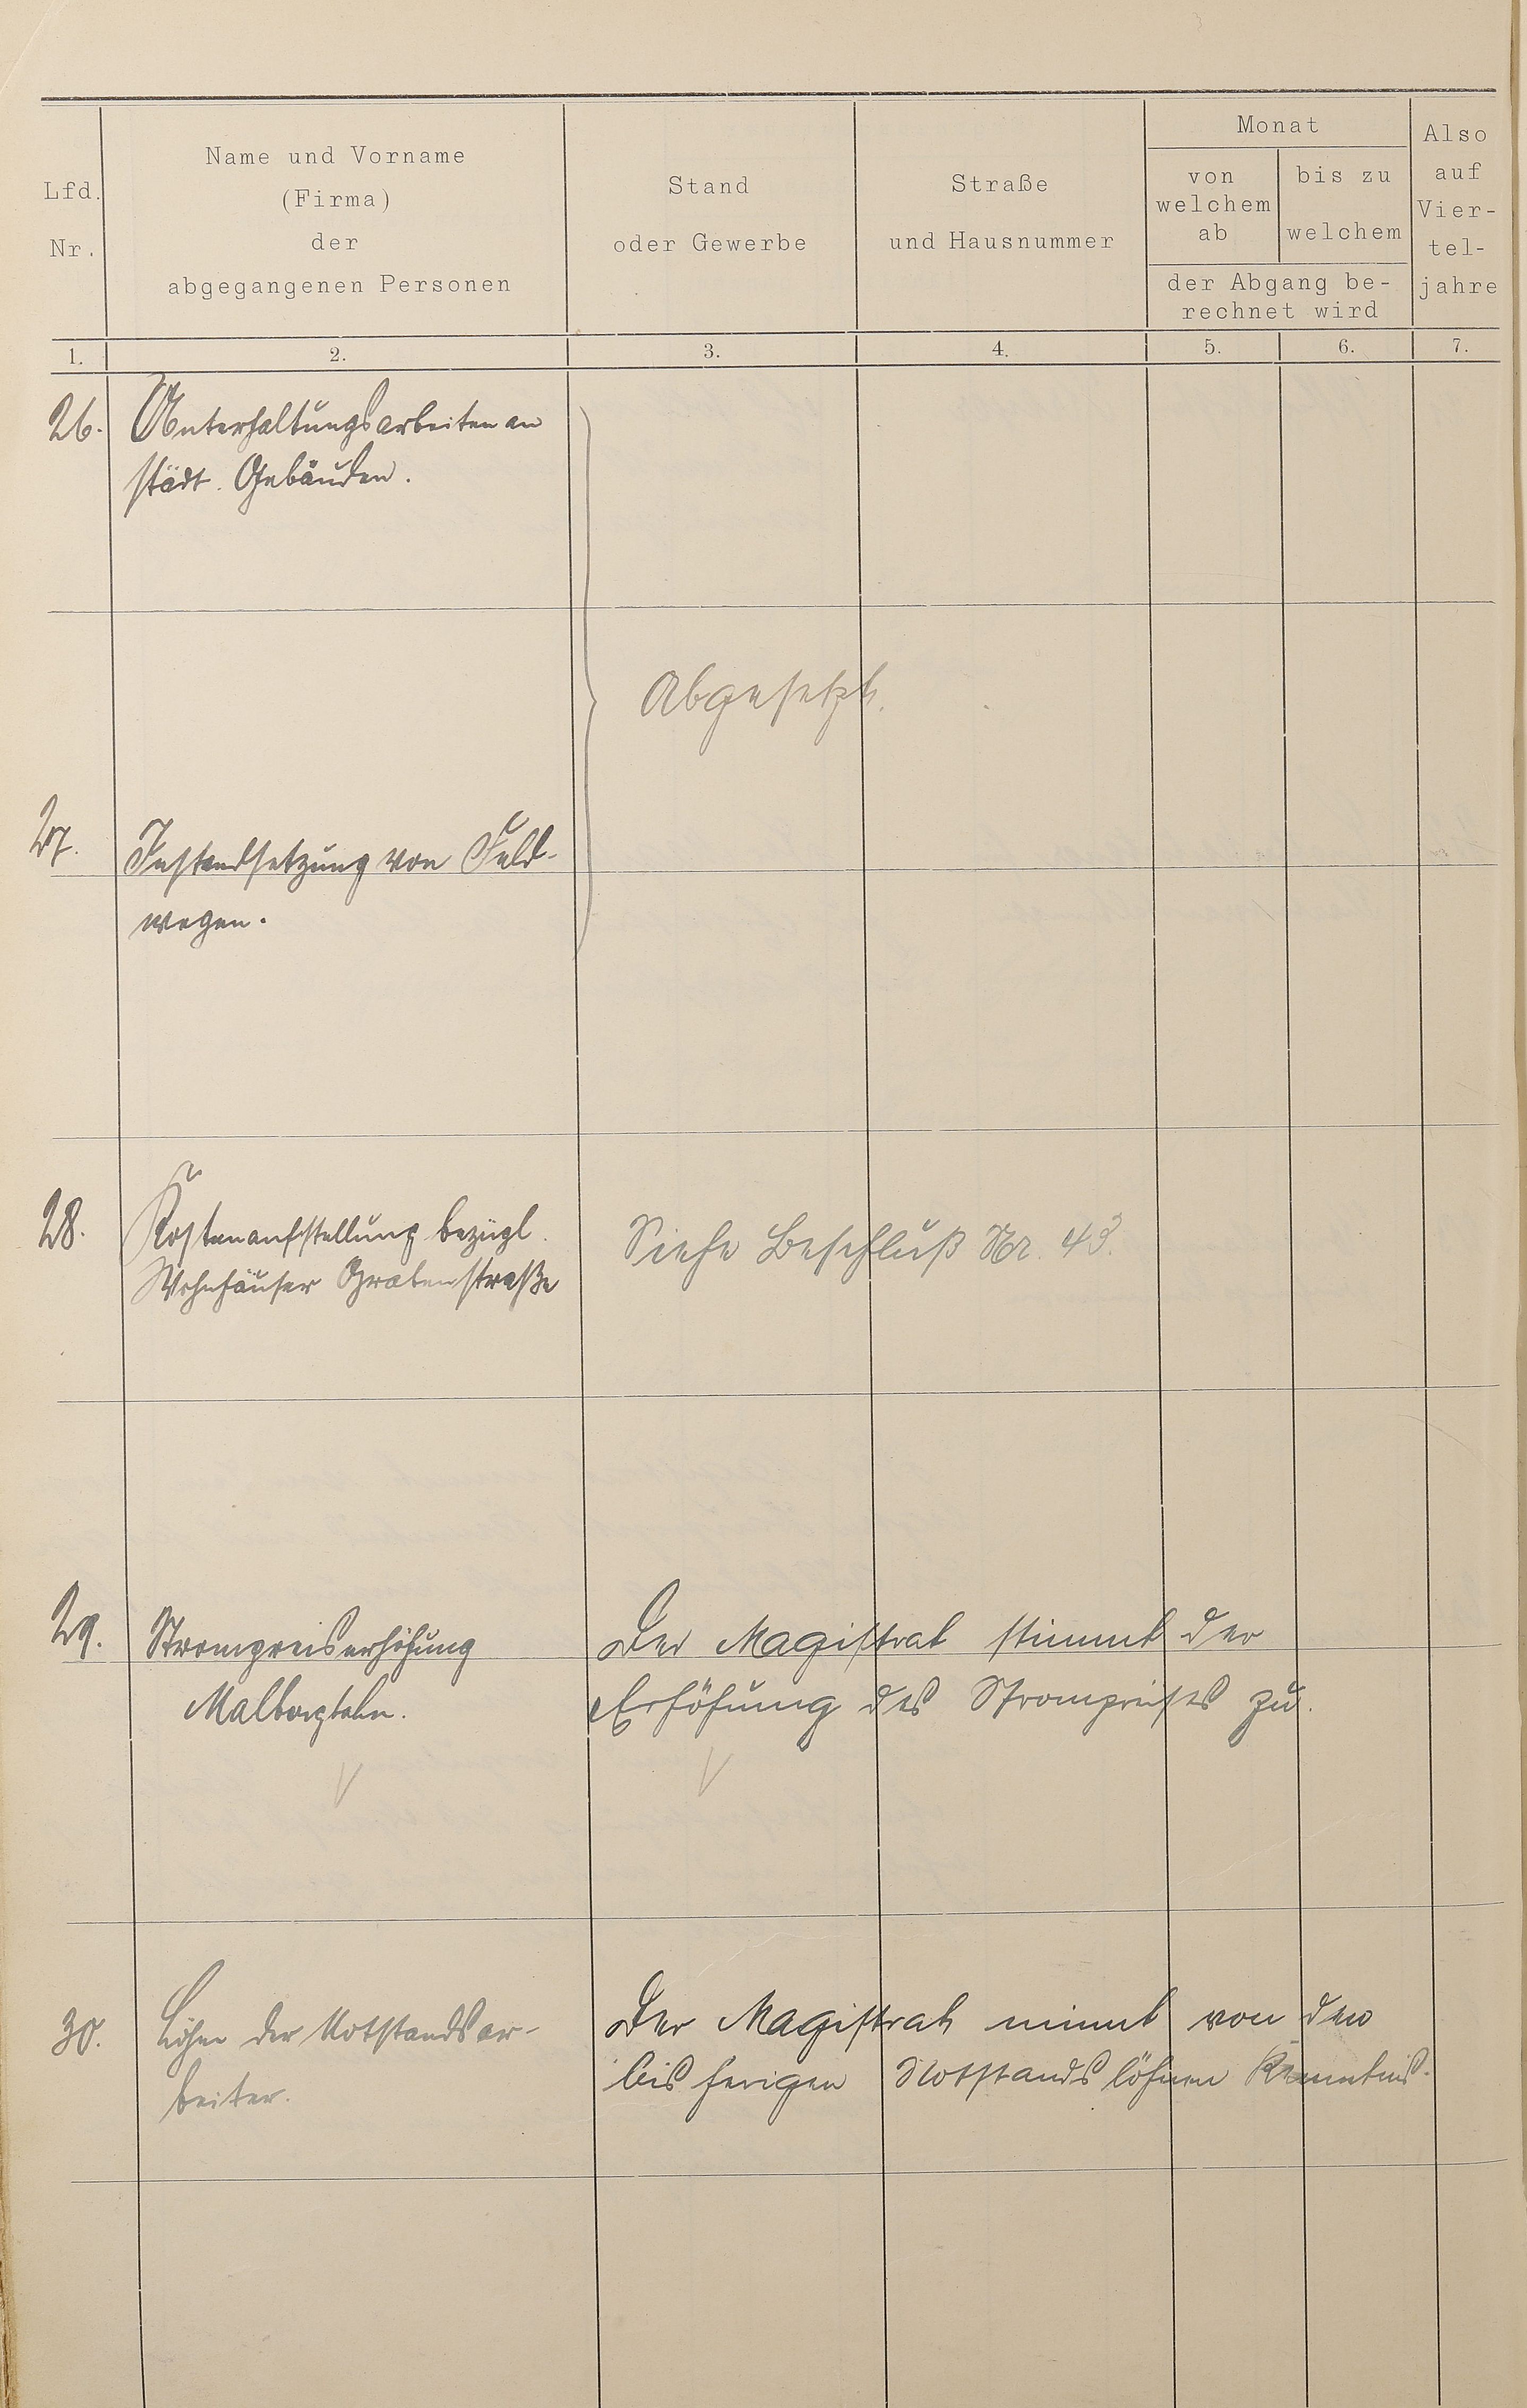 Lfd.
Nr.
Name und Vorname
(Firma)
der
abgegangenen Personen
Stand
oder Gewerbe
Straße
und Hausnummer
Monat
von
welchem
ab
bis zu
welchem
der Abgang be-
rechnet wird
Also
auf
Vier-
tel-
jahre
1. 2. 3. 4. 5. 6. 7.
26. Unterhaltungsarbeiten an
städt. Gebäuden.
Abgesetzt.
27. Instandsetzung von Feld-
wegen.
28. Kostenaufstellung bezügl.
Wohnhäuser Grabenstraße
Siehe Beschluß Nr. 43.
29. Strompreiserhöhung
Malbergbahn.
Der Magistrat stimmt der
Erhöhung des Strompreises zu.
30. Löhne der Notstandsar-
beiter.
Der Magistrat nimmt von den
bisherigen Notstandslöhnen Kenntnis.